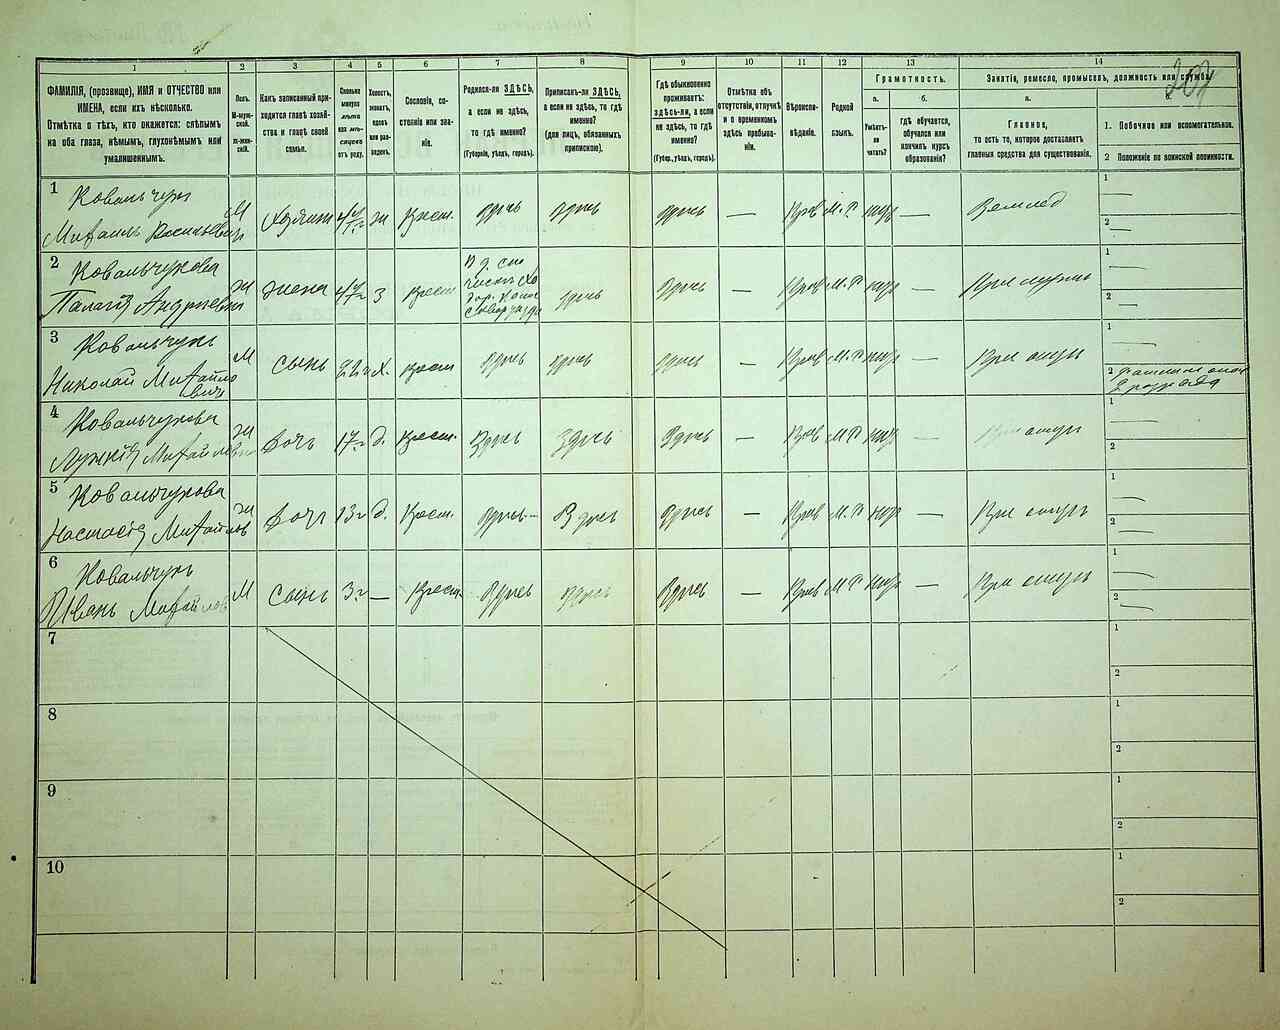 1
ФАМИЛІЯ, (прозвище), ИМЯ и ОТЧЕСТВО или
ИМЕНА, если ихъ нѣсколько.
Отмѣтка о тѣхъ, кто окажется: слѣпымъ
на оба глаза, нѣмымъ, глухонѣмымъ или
умалишеннымъ.
2
Полъ.
М-мужской.
Ж-женскій.
3
Какъ записанный при-
ходится главѣ хозяй-
ства и главѣ своей
семьи.
4
Сколько
минуло
лѣтъ
или мѣ-
сяцевъ
отъ роду.
5
Холостъ,
женатъ,
вдовъ
или раз-
веденъ.
6
Сословіе, со-
стояніе или зва-
ніе.
7
Родился-ли ЗДѢСЬ,
а если не здѣсь,
то гдѣ именно?
(Губернія, уѣздъ, городъ).
8
Приписанъ-ли ЗДѢСЬ,
а если не здѣсь, то гдѣ
именно?
(для лицъ, обязанныхъ
припискою).
9
Гдѣ обыкновенно
проживаетъ:
здѣсь-ли, а если
не здѣсь, то гдѣ
именно?
(Губер., уѣздъ, городъ).
10
Отмѣтка объ
отсутствіи, отлучкѣ
и о временномъ
здѣсь пребыва-
ніи.
11
Вѣроиспо-
вѣданіе.
12
Родной
языкъ.
13
Грамотность.
а.
Умѣетъ-
ли
читать?
б.
гдѣ обучается,
обучался или
кончилъ курсъ
образованія?
14
Занятіе, ремесло, промыселъ, должность или служба
а.
Главное,
то есть то, которое доставляетъ
главныя средства для существованія.
1. Побочное или вспомогательное.
2 Положеніе по воинской повинности.
1
Ковальчукъ
Михаилъ Васильевъ
М
Хозяинъ
Крест.
здѣсь
здѣсь
здѣсь
—
Прав
М. Р
—
Землед
1
—
2
—
2
Ковальчукова
Андреевна
Ж
жена
47
З
Крест
здѣсь
здѣсь
—
Прав
М. Р
—
При мужѣ
1
—
2
—
3
Ковальчукъ
Николай Михайло
вичъ
М
сынъ
22
Х.
Крест
здѣсь
здѣсь
здѣсь
—
Прав
М. Р
—
При отцѣ
1
—
2
2 разряда
4
Ковальчукова
Ж
дочь
17
д.
Крест.
Здѣсь
Здѣсь
Здѣсь
—
Прав
М. Р
—
При отцѣ
1
—
2
5
Ковальчукова
Настасія Михайлов
Ж
дочь
13
д.
Крест.
здѣсь
Здѣсь
здѣсь
—
Прав
М. Р
—
При отцѣ
1
—
2
—
6
Ковальчукъ
Иванъ Михайлов
М
сынъ
3
—
Крест
Здѣсь
здѣсь
Здѣсь
—
Прав
М. Р
—
При отцѣ
1
—
2
—
7
1
2
8
1
2
9
1
2
10
1
2